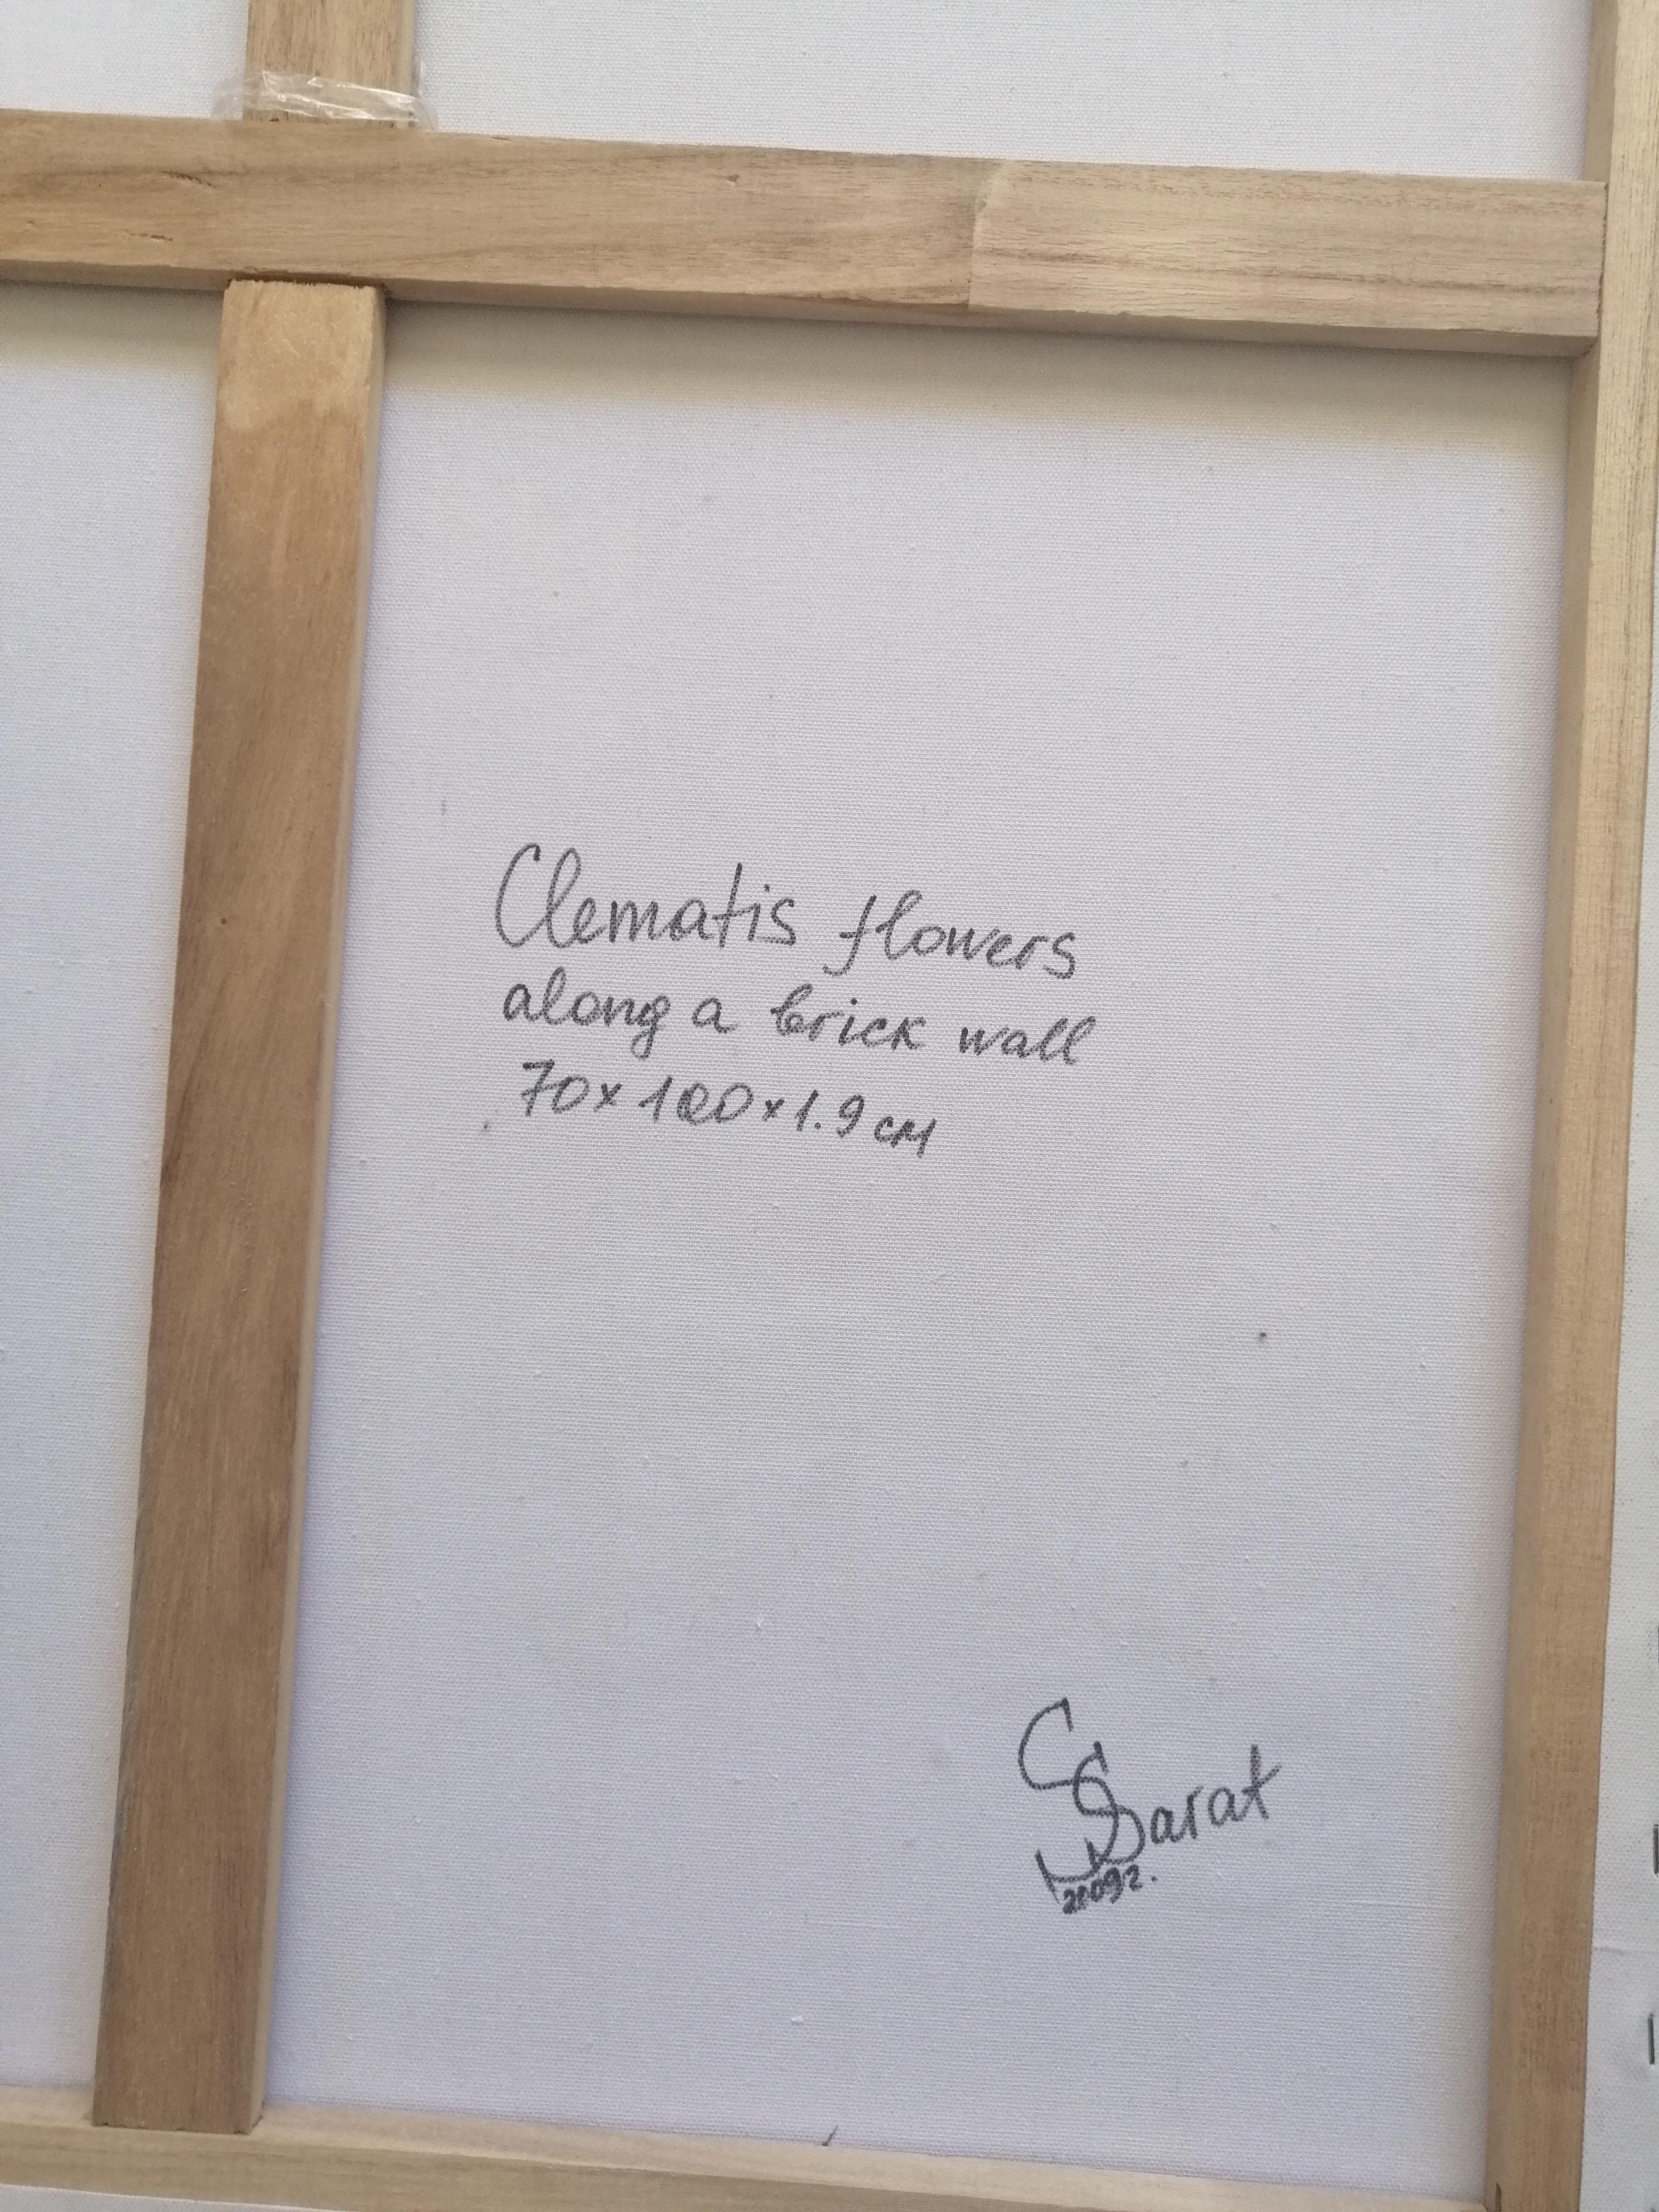 Clematis flowers
along a brick wall
70x100x1.9 см
SSarat